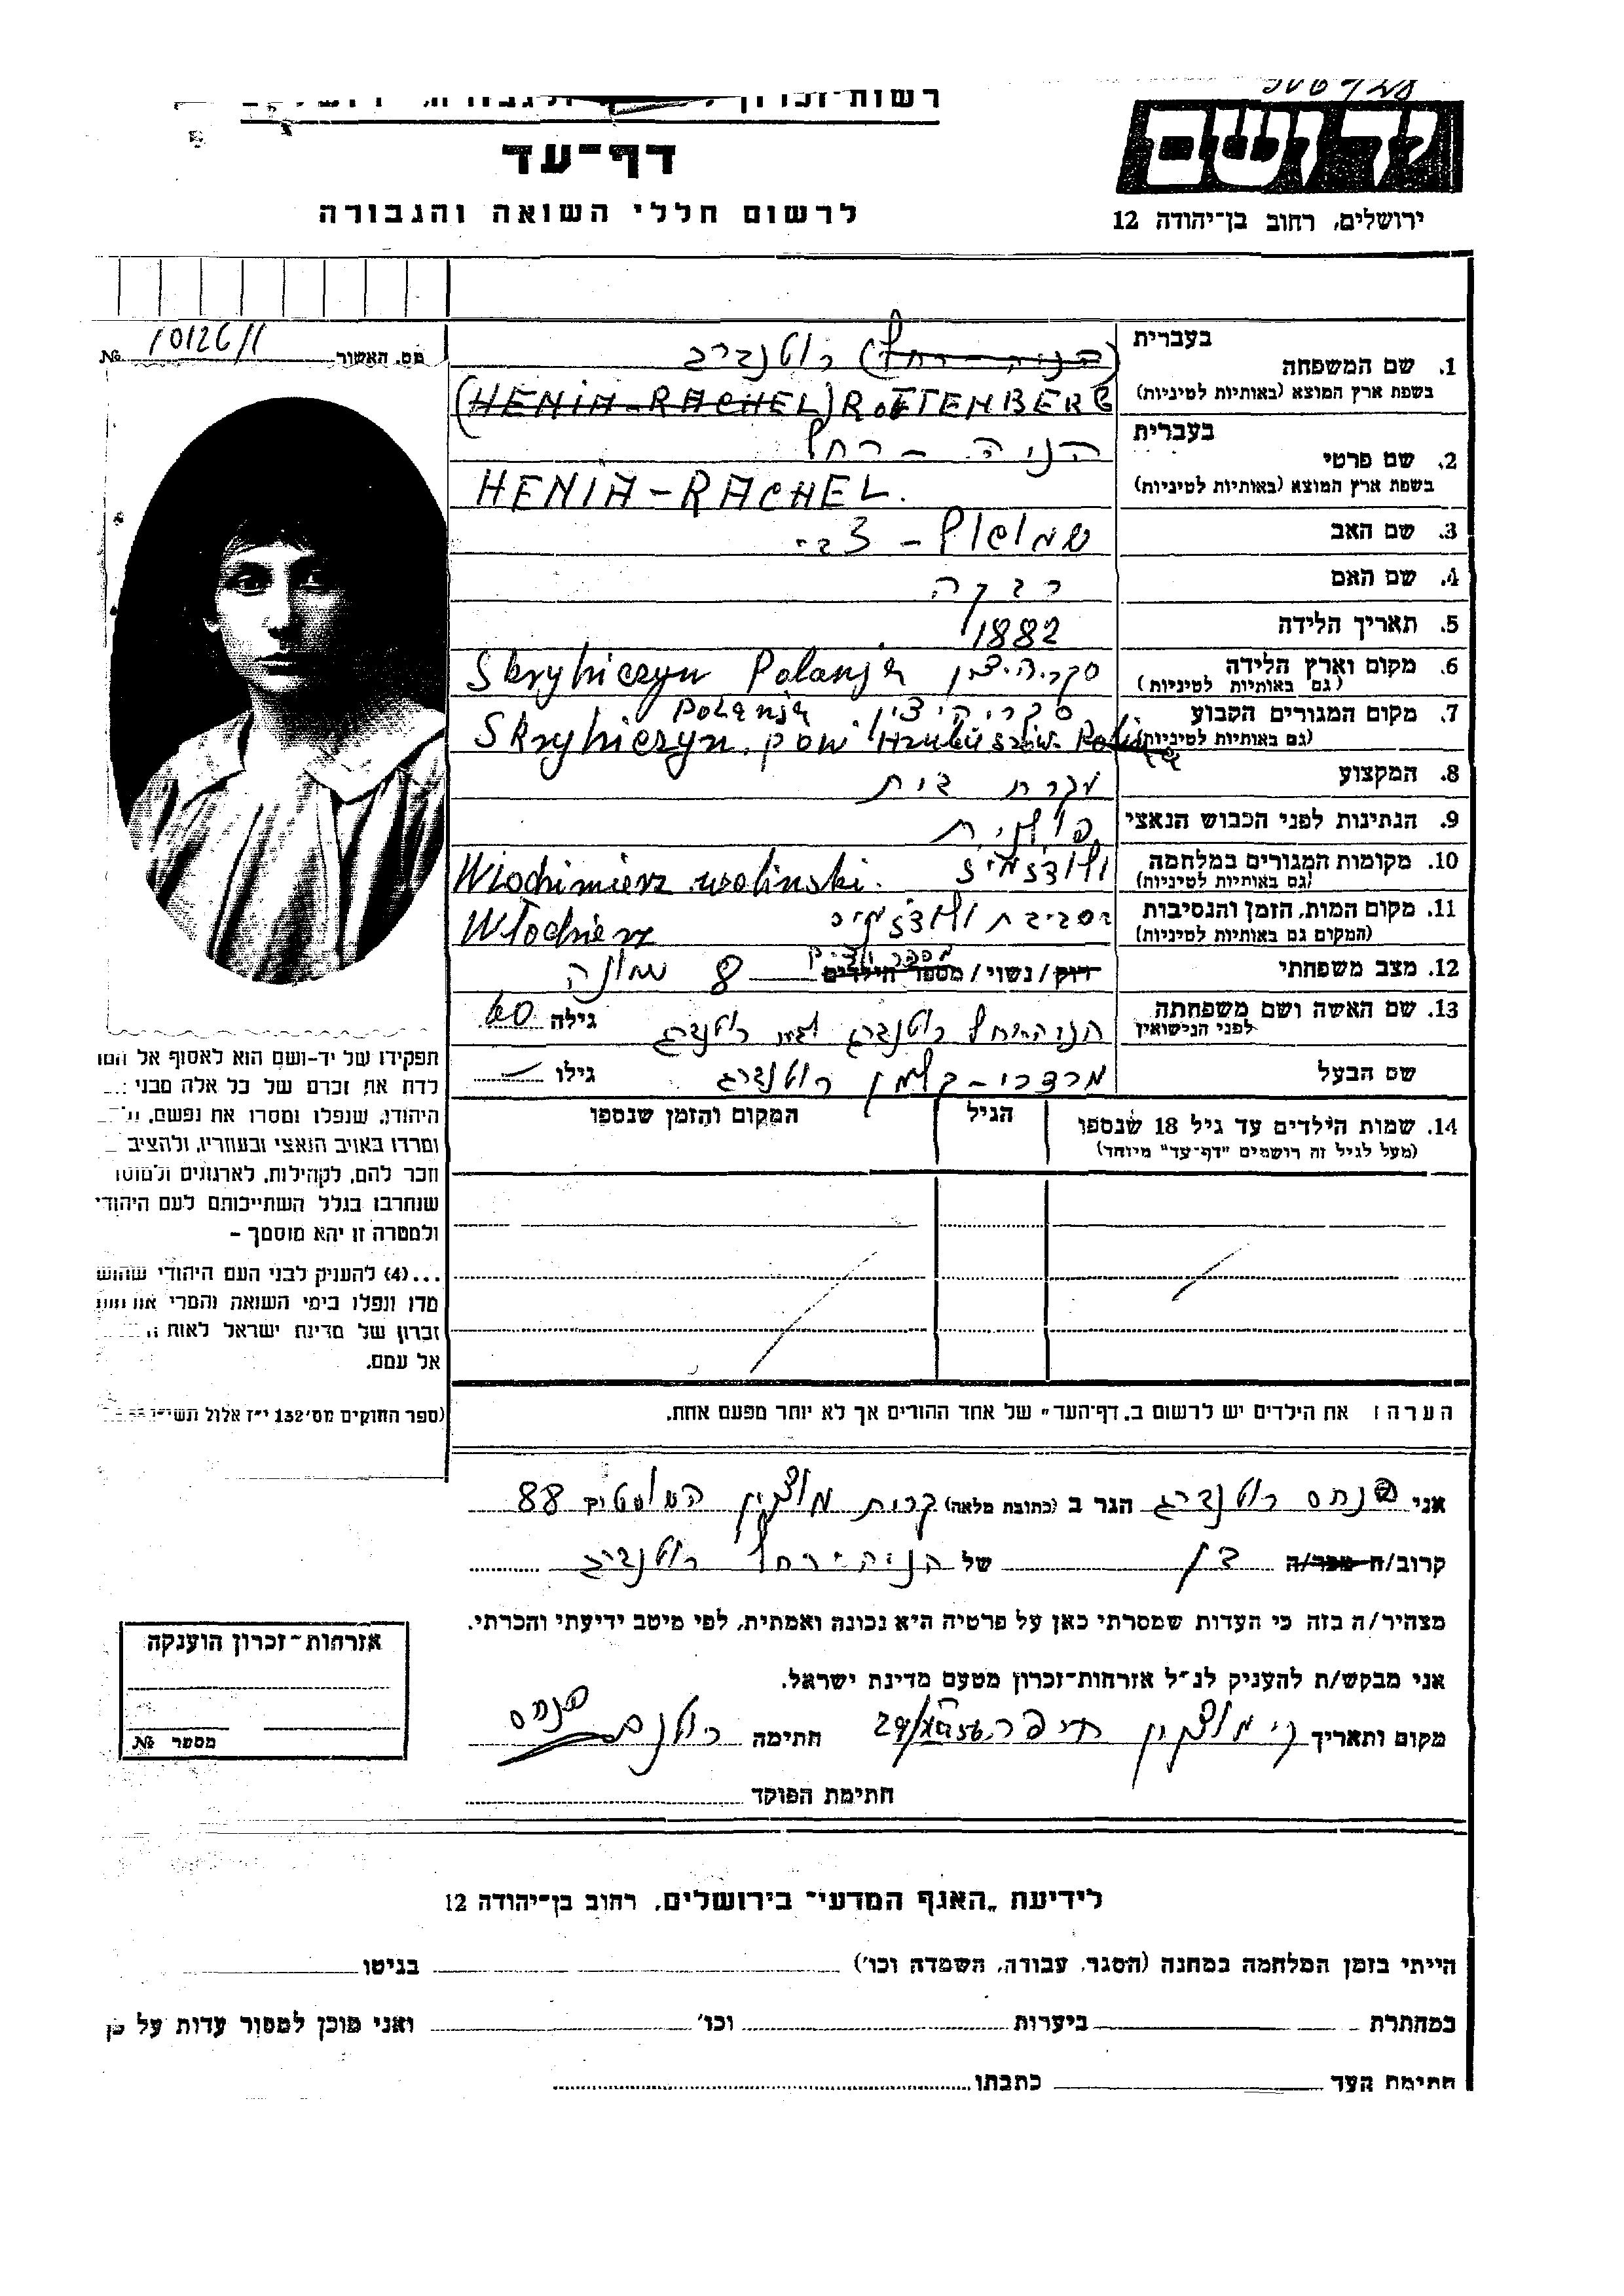 יד ושם
ירושלים, רחוב בן־יהודה 12
דף־עד
לרשום חללי השואה והגבורה
מס. האשור 10126/11 №
בעברית
1. שם המשפחה (הניה - רחל) רוטנברג
בשפת ארץ המוצא (באותיות לטיניות) (HENIA-RACHEL) ROTTENBERG
בעברית
2. שם פרטי הניה - רחל
בשפת ארץ המוצא (באותיות לטיניות) HENIA-RACHEL.
3. שם האב שמואל - צבי
4. שם האם רבקה
5. תאריך הלידה 1882
6. מקום וארץ הלידה
(גם באותיות לטיניות) Skryhiczyn Polanja
7. מקום המגורים הקבוע Polanja
(גם באותיות לטיניות) Skryhiczyn. pow.
8. המקצוע עקרת בית
9. הנתינות לפני הכבוש הנאצי פולנית
10. מקומות המגורים במלחמה
(גם באותיות לטיניות) Wlodzimierz wolinski.
11. מקום המות, הזמן והנסיבות
(המקום גם באותיות לטיניות)
12. מצב משפחתי רוק/נשוי/מספר הילדים 8 שמונה
13. שם האשה ושם משפחתה
לפני הנישואין רוטנברג רוטנברג גילה 60
שם הבעל מרדכי - קלמן רוטנברג גילו
14. שמות הילדים עד גיל 18 שנספו הגיל המקום והזמן שנספו
(מעל לגיל זה רושמים "דף־עד" מיוחד)
תפקידו של יד-ושם הוא לאסוף אל
לדת את זכרם של כל אלה מבני
היהודי, שנפלו ומסרו את נפשם,
ומרדו באויב הנאצי ובעוזריו, ולהציב
וזכר להם, לקהילות, לארגונים
שנחרבו בגלל השתייכותם לעם היהודי
ולמטרה זו יהא מוסמך –
...(4) להעניק לבני העם היהודי
מדו ונפלו בימי השואה והמרי
זכרון של מדינת ישראל לאות
אל עמם.
(ספר החוקים מס' 132 י"ז אלול
הערה: את הילדים יש לרשום ב„דף־העד" של אחד ההורים אך לא יותר מפעם אחת.
אני פנחס רוטנברג הגר ב (כתובת מלאה) קרית מוצקין 88
קרוב/ה מכר/ה בן של הניה־רחל רוטנברג
מצהיר/ה בזה כי העדות שמסרתי כאן על פרטיה היא נכונה ואמתית, לפי מיטב ידיעתי והכרתי.
אני מבקש/ת להעניק לנ"ל אזרחות־זכרון מטעם מדינת ישראל.
מקום ותאריך ק' מוצקין חיפה חתימה פנחס
חתימת הפוקד
אזרחות־זכרון הוענקה
מספר №
לידיעת „האגף המדעי" בירושלים, רחוב בן־יהודה 12
הייתי בזמן המלחמה במחנה (הסגר, עבודה, השמדה וכו') בגיטו
במחתרת ביערות וכו' ואני מוכן למסור עדות על כן
חתימת העד כתבתו